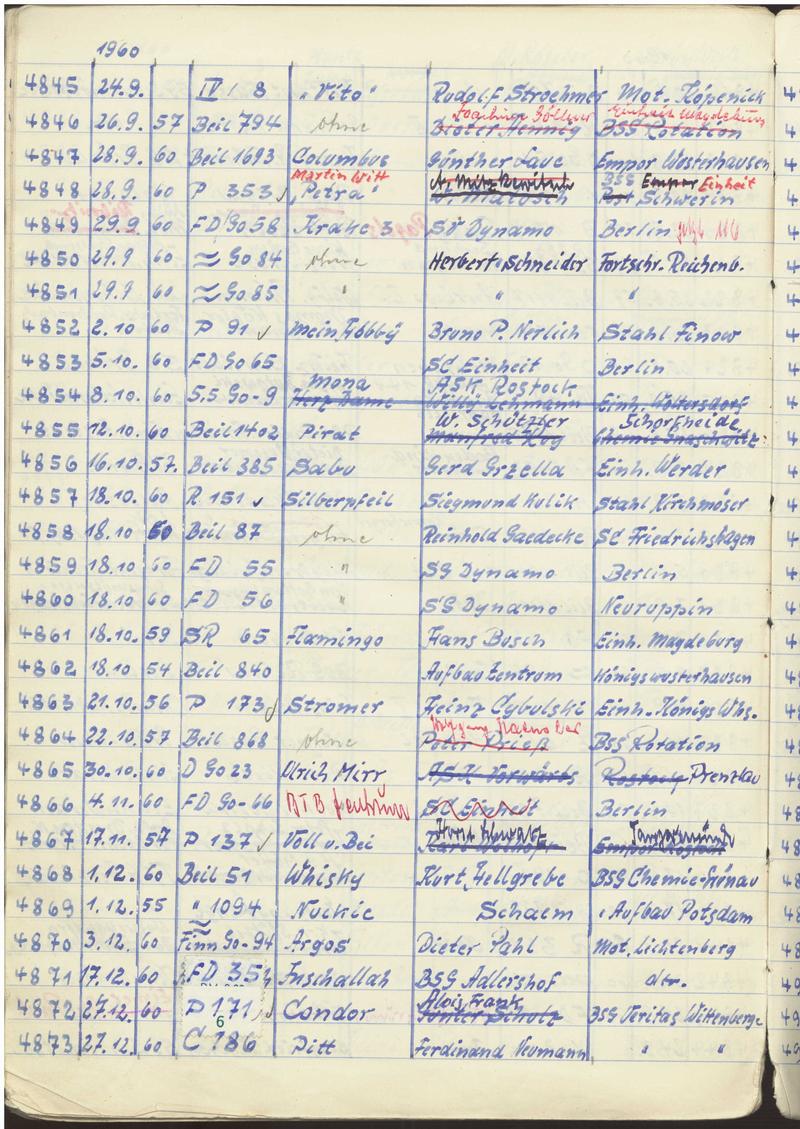 1960
4845 24.9. IV / 8 "Vito" Rudolf Stroehmer Mot. Köpenick
4846 26.9. 57 Beil 794 ohne Dieter Hennig BSG Rotation
4847 28.9. 60 Beil 1693 Columbus Günther Laue Empor Wusterhausen
Martin Witt
4848 28.9. 60 P 353 "Petra" BSG Empor Einheit Schwerin
4849 29.9. 60 FD Go 58 Krake 3 SV Dynamo Berlin
4850 29.9 60 ≈ Go 84 ohne Herbert Schneider Fortschr. Reichenb.
4851 29.9 60 ≈ Go 85 " " "
4852 2.10 60 P 91 Mein Hobby Bruno P. Nerlich Stahl Finow
4853 5.10. 60 FD Go 65 SC Einheit Berlin
Mona ASK Rostock
4854 8.10. 60 S.S Go-9 Herz Dame Willy Lehmann Einh. Woltersdorf
W. Schützler Schorfheide
4855 12.10. 60 Beil 1402 Pirat Manfred
4856 16.10. 57. Beil 385 Sabu Gerd Grzella Einh. Werder
4857 18.10. 60 R 151 Silberpfeil Siegmund Kulik Stahl Kirchmöser
4858 18.10 60 Beil 87 ohne Reinhold Gaedecke SC Friedrichshagen
4859 18.10 60 FD 55 " SG Dynamo Berlin
4860 18.10 60 FD 56 " SG Dynamo Neuruppin
4861 18.10. 59 SR 65 Flamingo Hans Busch Einh. Magdeburg
4862 18.10 54 Beil 840 Aufbau Zentrum Königswusterhausen
4863 21.10. 56 P 173 Stromer Heinz Cybulski Einh. Königs Whs.
4864 22.10. 57 Beil 868 ohne Peter BSG Rotation
4865 30.10. 60 D Go 23 Ulrich Mirr ASK Vorwärts Rostock Prenzlau
4866 4.11. 60 FD Go-66 SC Einheit Berlin
Horst Tangermünde
4867 17.11. 57 P 137 Voll u. Bei Empor Rostock
4868 1.12. 60 Beil 51 Whisky Kurt Hellgrebe BSG Chemie-Grünau
4869 1.12. 55 " 1094 Nuckie Schaem Aufbau Potsdam
4870 3.12. 60 Finn Go-94 Argos Dieter Pahl Mot. Lichtenberg
4871 17.12. 60 FD 35 Inschallah BSG Adlershof dtr.
Alois Frank
4872 27.12. 60 P 171 Condor Günter Scholz BSG Veritas Wittenberge
6
4873 27.12. 60 C 186 Pitt Ferdinand Neumann " "